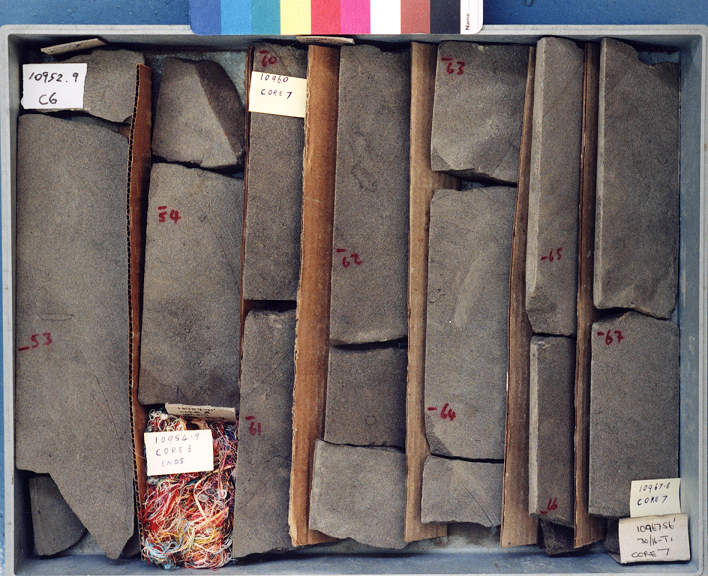 Name
10952.9
C6
-53
-54
10954.9
CORE 6
ENDS
-60
10960
CORE 7
-61
-62
-63
-64
-65
-66
-67
10967.6
CORE 7
10967'56"
30/16-T1
CORE 7